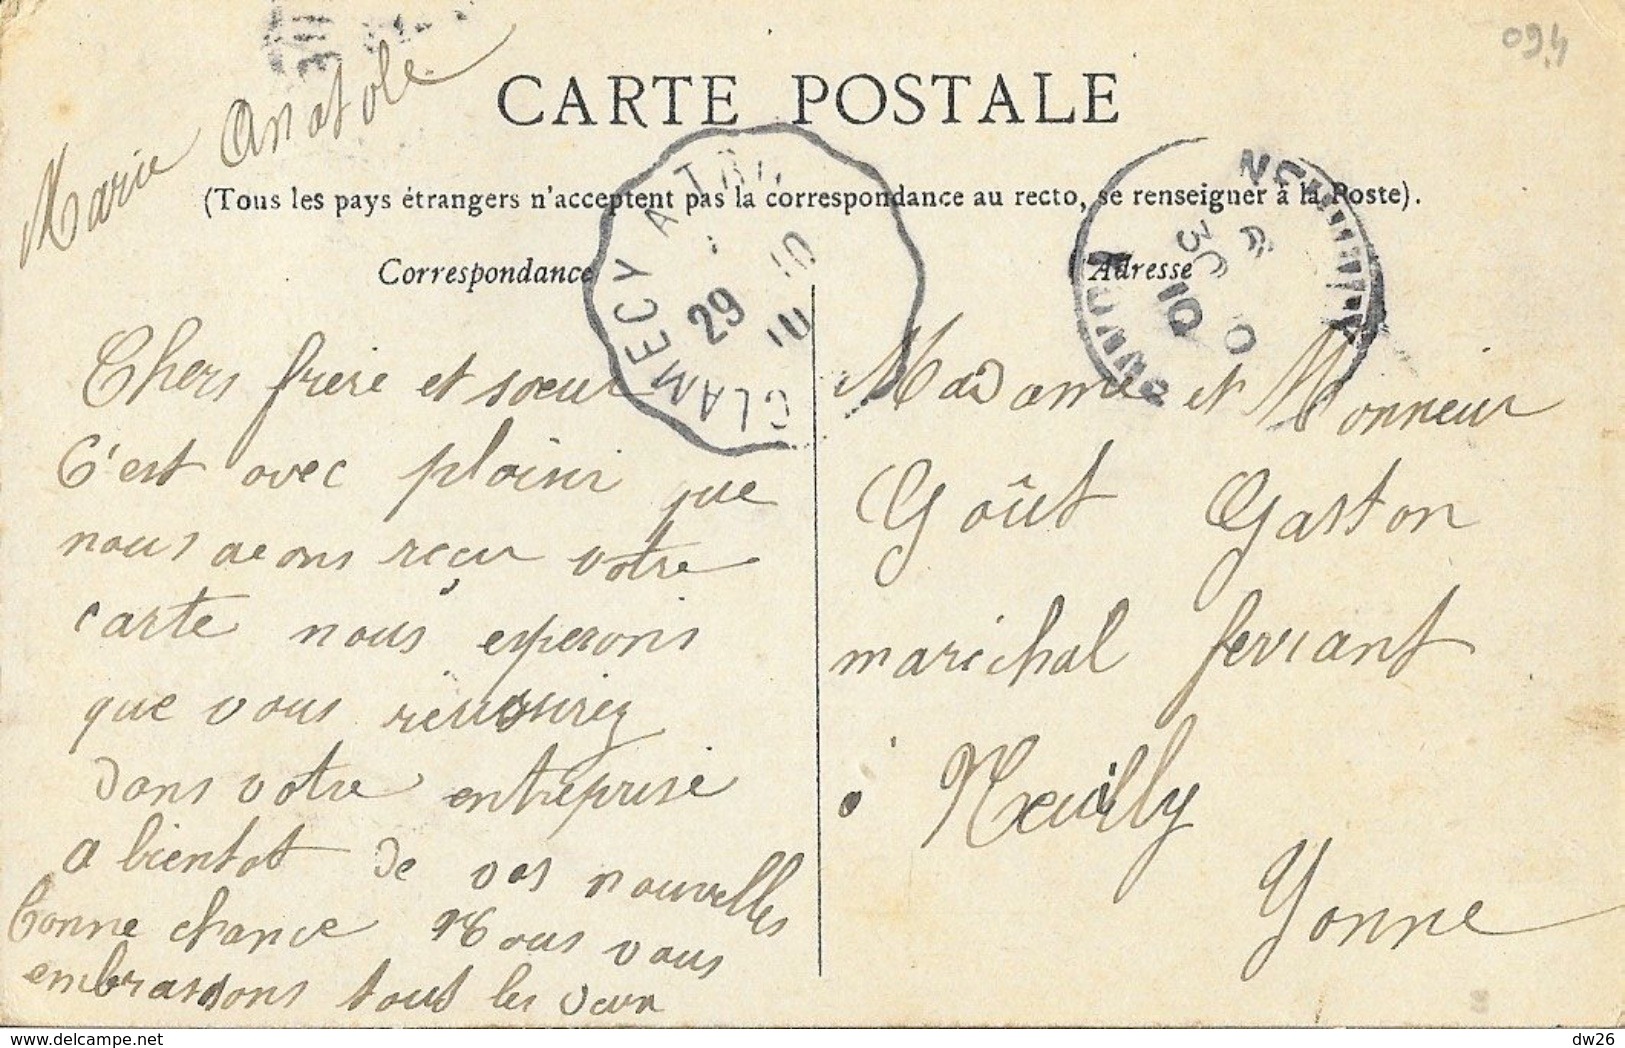 094
Marie Anatole
CARTE POSTALE
(Tous les pays étrangers n'acceptent pas la correspondance au recto, se renseigner à la Poste).
Correspondance
Adresse
CLAMECY A TRI
29
10
10
30
10
Chers frere et soeur
C'est avec plaisir que
nous avons reçu votre
carte nous esperons
que vous réussirez
dans votre entreprise
a bientot de vos nouvelles
bonne chance Nous vous
embrassons tous les deux
Madame et Monsieur
Goût Gaston
marichal ferrant
à Neuilly
Yonne
delcampe.net
dw26